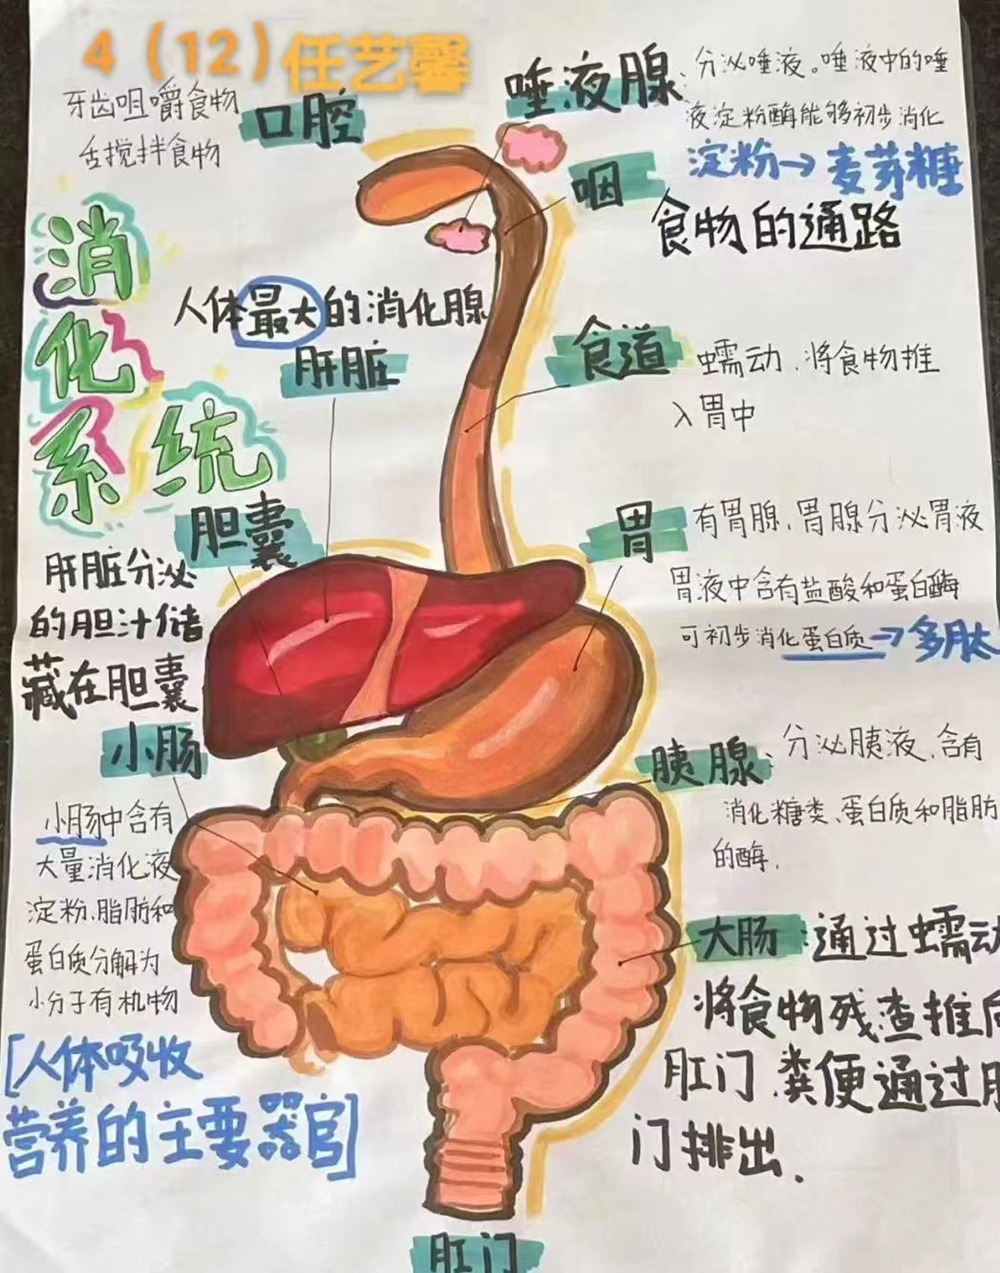 4（12）任艺馨
牙齿咀嚼食物
舌搅拌食物
口腔
唾液腺
：分泌唾液。唾液中的唾
液淀粉酶能够初步消化
淀粉→麦芽糖
咽
食物的通路
消化系统
人体最大的消化腺
肝脏
食道
蠕动、将食物推
入胃中
胆囊
肝脏分泌
的胆汁储
藏在胆囊
胃
有胃腺，胃腺分泌胃液
胃液中含有盐酸和蛋白酶
可初步消化蛋白质→多肽
小肠
小肠中含有
大量消化液
淀粉、脂肪和
蛋白质分解为
小分子有机物
[人体吸收
营养的主要器官]
胰腺
：分泌胰液，含有
消化糖类、蛋白质和脂肪
的酶.
大肠：通过蠕动
将食物残渣推向
肛门.粪便通过肛
门排出.
肛门